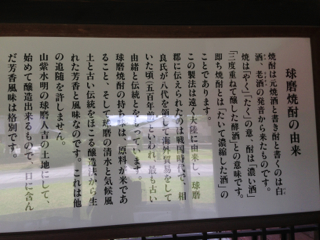 球磨焼酎の由来
焼酎は元焼酒と書き酎と書くのは白
酒、老酒の発音から来たものです。
焼は「やく」「たく」の意、酎は「濃い酒」
「三度重ねて醸した醇酒」との意味です。
即ち焼酎とは「たいて濃縮した酒」の
ことであります。
この製法は遠く大陸に由来し、球磨
郡に伝えられたのは戦国時代で、相
良氏が八代を領して海外貿易をして
いた頃(五百年前)といわれ、最も古い
由緒と伝統とをもっています
球磨焼酎の特色は、原料が米であ
ること、そして球磨の清水と気候風
土と古い伝統をほこる醸造法から生
れた芳香と風味なのです。これは他
の追随を許しません。
山紫水明の球磨人吉の土地にして、
始めて醸造出来るもので、口に含ん
だ芳香風味は格別です。